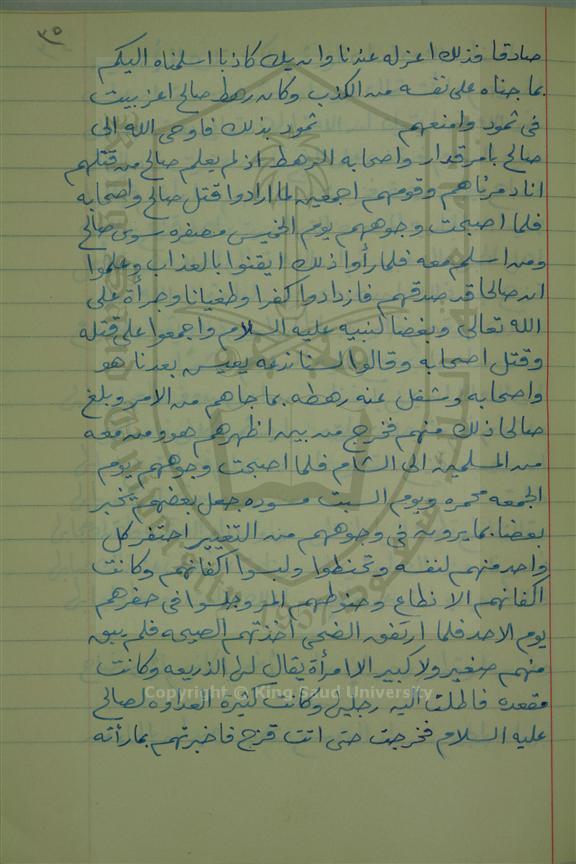 ٣٥
صادقا فذلك اعز له عندنا وان يك كاذبا اسلمناه اليكم
بما جناه على نفسه من الكذب وكان رهط صالح اعز بيت
فى ثمود وامنعهم ثمود بذلك فاوحى الله الى
صالح بامر قدار واصحابه الرهط اذ لم يعلم صالح من قتلهم
انا دمرناهم وقومهم اجمعين لما ارادوا قتل صالح واصحابه
فلما اصبحت وجوههم يوم الخميس مصفره سوى صالح
ومن اسلم معه فلما رأوا ذلك ايقنوا بالعذاب وعلموا
ان صالحا قد صدقهم فازدادوا كفرا وطغيانا وجرأة على
الله تعالى وبغضا لنبيه عليه السلام واجمعوا على قتله
وقتل اصحابه وقالوا لسنا ندعه يعيش بعدنا هو
واصحابه وشغل عنه رهطه بما جاهم من الامر وبلغ
صالحا ذلك منهم فخرج من بين اظهرهم هو ومن معه
من المسلمين الى الشام فلما اصبحت وجوههم يوم
الجمعه محمره ويوم السبت مسوده جعل بعضهم يخبر
بعضا بما يرون فى وجوههم من التغيير احتفر كل
واحد منهم لنفسه وتحنطوا ولبسوا اكفانهم وكانت
اكفانهم الانطاع وحنوطهم المر وجلسوا فى حفرهم
يوم الاحد فلما ارتفق الضحى اخذتهم الصيحه فلم يبق
منهم صغير ولا كبير الا امرأة يقال لها الذريعه وكانت
Copyright © King Saud University
مقعده فاطلت اليه رجليها وكانت كثيرة العداوه لصالح
عليه السلام فخرجت حتى اتت قزح فاخبرتهم بما رأته